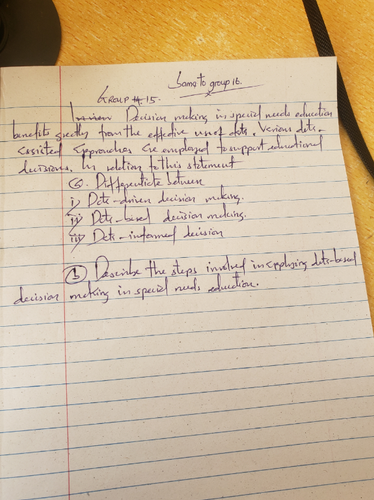 Same to group 16.
GROUP 15.
Decision making in special needs education
benefits greatly from the effective use of data. Various data-
assisted approaches are employed to support educational
decisions. In relation to this statement
a. Differentiate between
i) Data-driven decision making.
ii) Data-based decision making.
iii) Data-informed decision
b Describe the steps involved in applying data-based
decision making in special needs education.